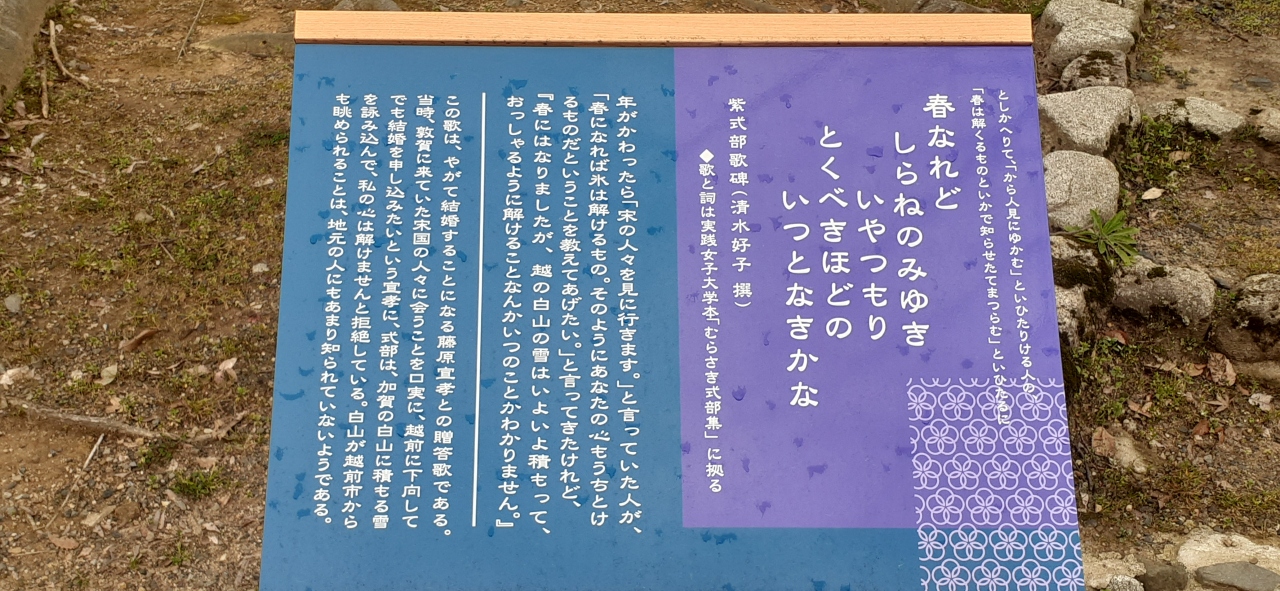 としかへりて、「から人見にゆかむ」といひたりける人の、
「春は解くるものといかで知らせたてまつらむ」といひたるに
春なれど
しらねのみゆき
いやつもり
とくべきほどの
いつとなきかな
紫式部歌碑(清水好子 撰)
◆歌と詞は実践女子大学本「むらさき式部集」に拠る
年がかわったら「宋の人々を見に行きます。」と言っていた人が、
「春になれば氷は解けるもの。そのようにあなたの心もうちとけ
るものだということを教えてあげたい。」と言ってきたけれど、
『春にはなりましたが、越の白山の雪はいよいよ積もって、
おっしゃるように解けることなんかいつのことかわかりません。』
この歌は、やがて結婚することになる藤原宣孝との贈答歌である。
当時、敦賀に来ていた宋国の人々に会うことを口実に、越前に下向して
でも結婚を申し込みたいという宣孝に、式部は、加賀の白山に積もる雪
を詠み込んで、私の心は解けませんと拒絶している。白山が越前市から
も眺められることは、地元の人にもあまり知られていないようである。